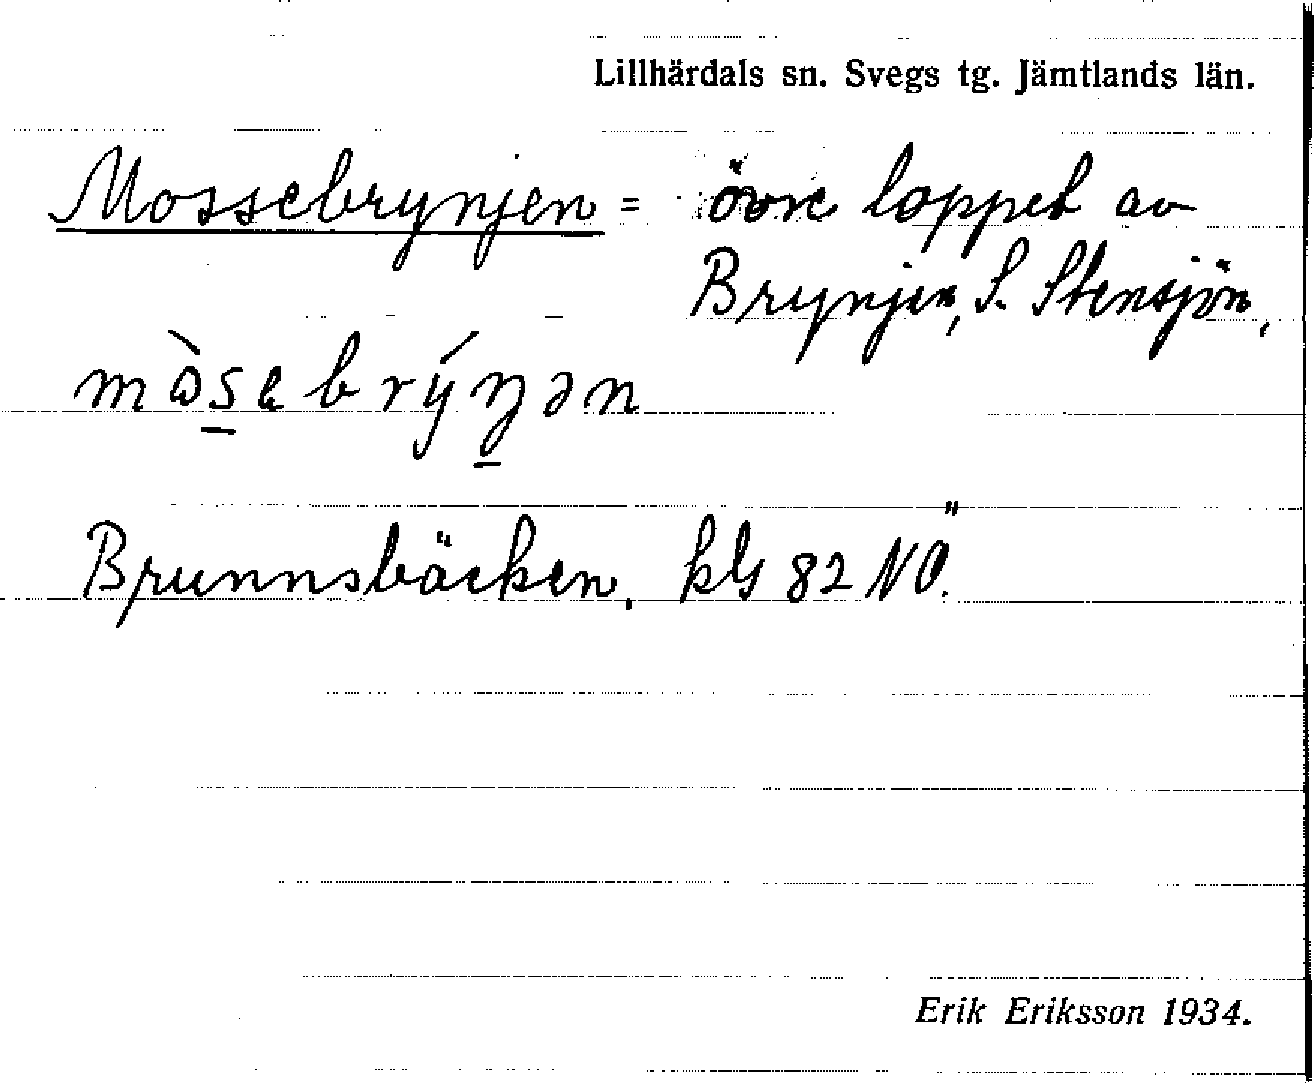 Lillhärdals sn. Svegs tg. Jämtlands län.
Mossebrynjen = övre loppet av
Brynjen, S. Stensjön,
Brunnsbäcken. kbl 82 NO.
Erik Eriksson 1934.